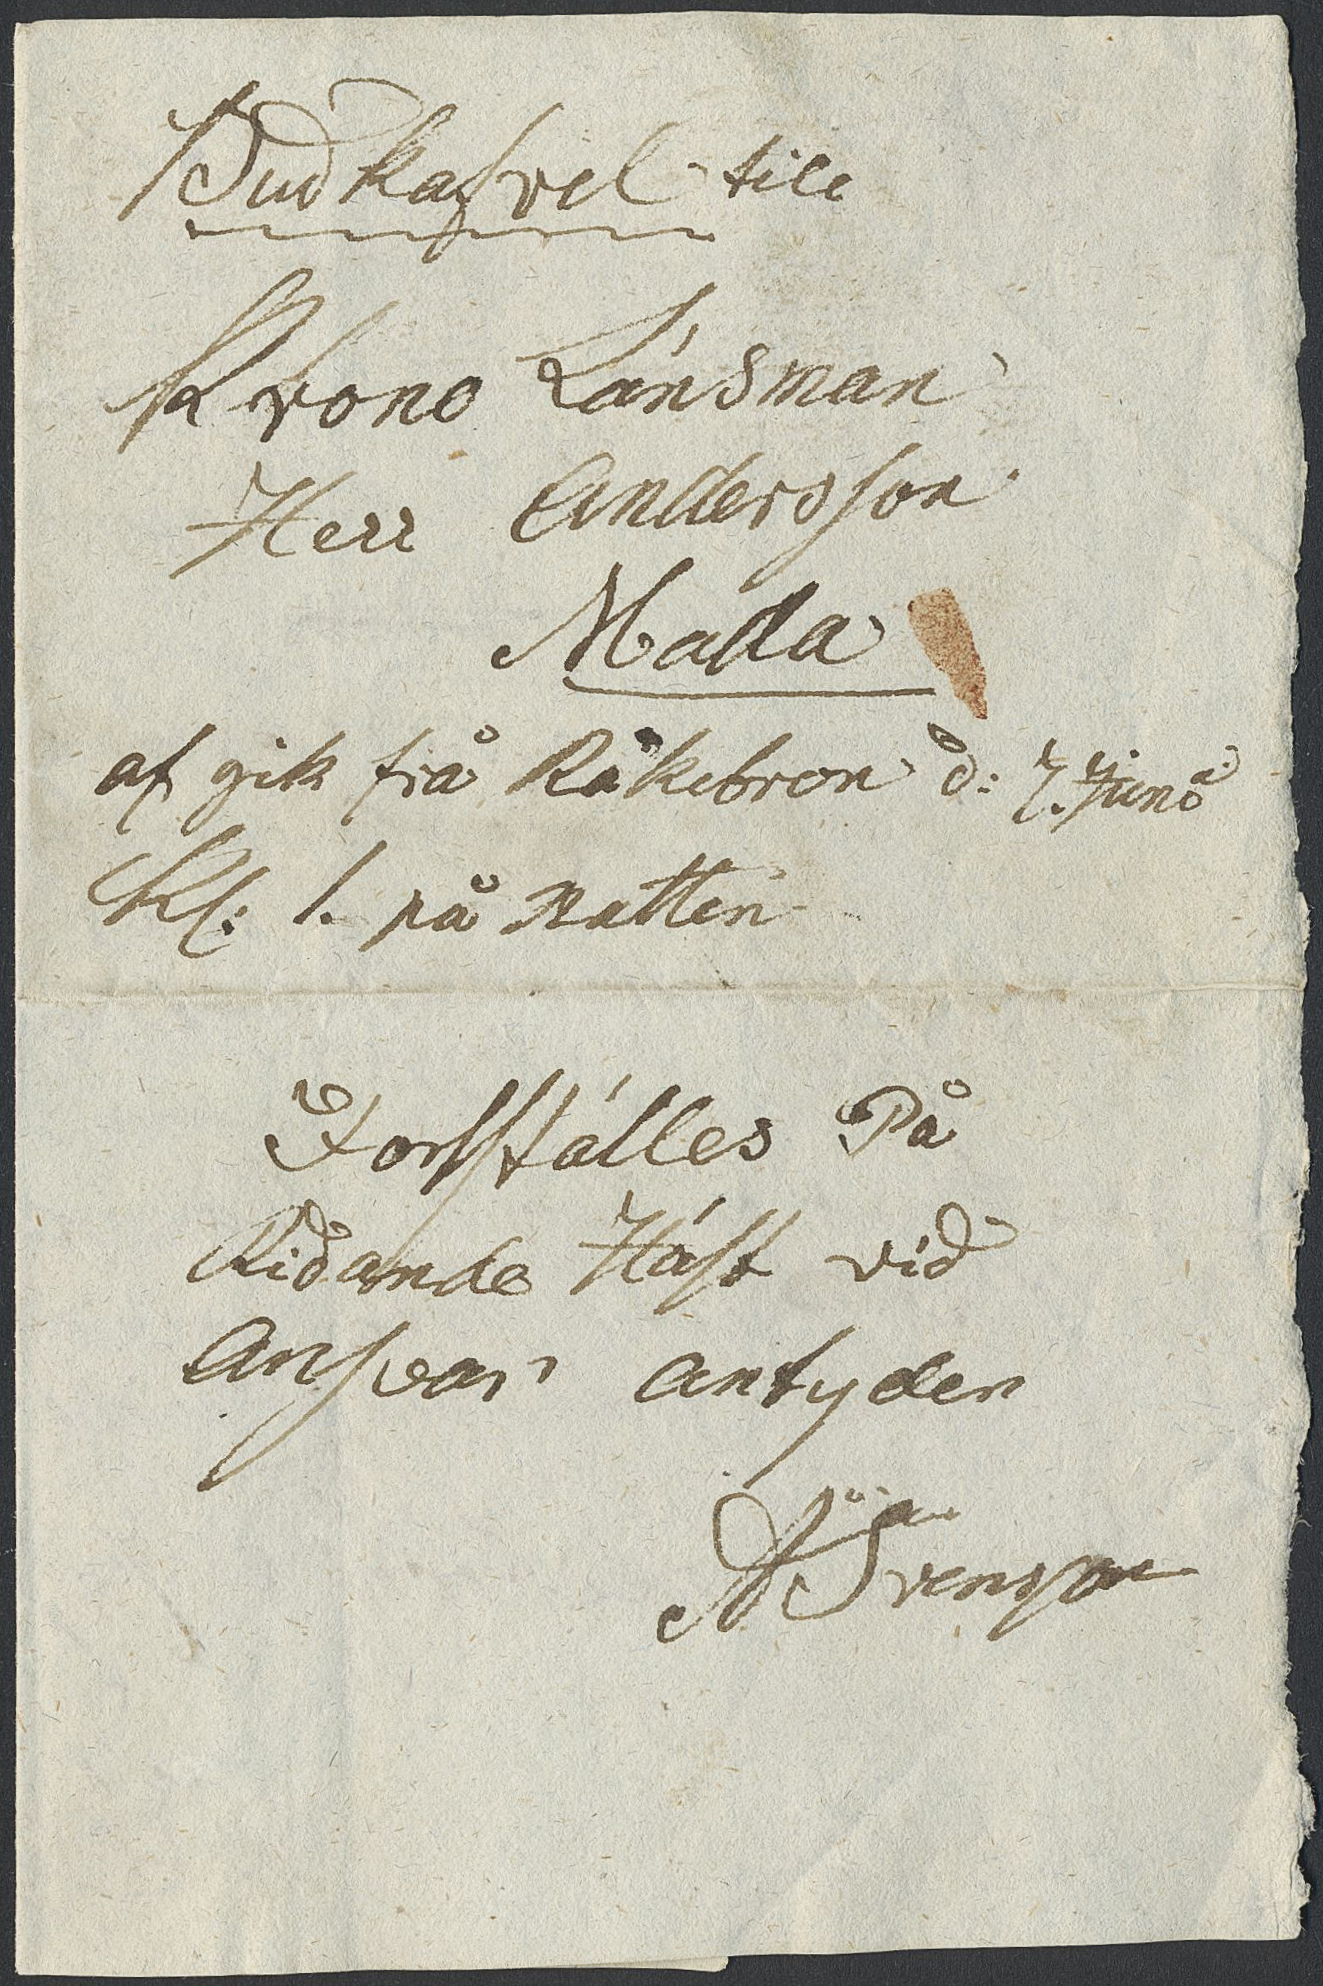 Budkafvel till
Krono Länsman
Herr Andersson
Mada
af gik frå Råkebron d: 7. Juni
Kl: 1. på Natten
Forsställes På
Ridande Häst vid
Ansvar antyder
Svenson